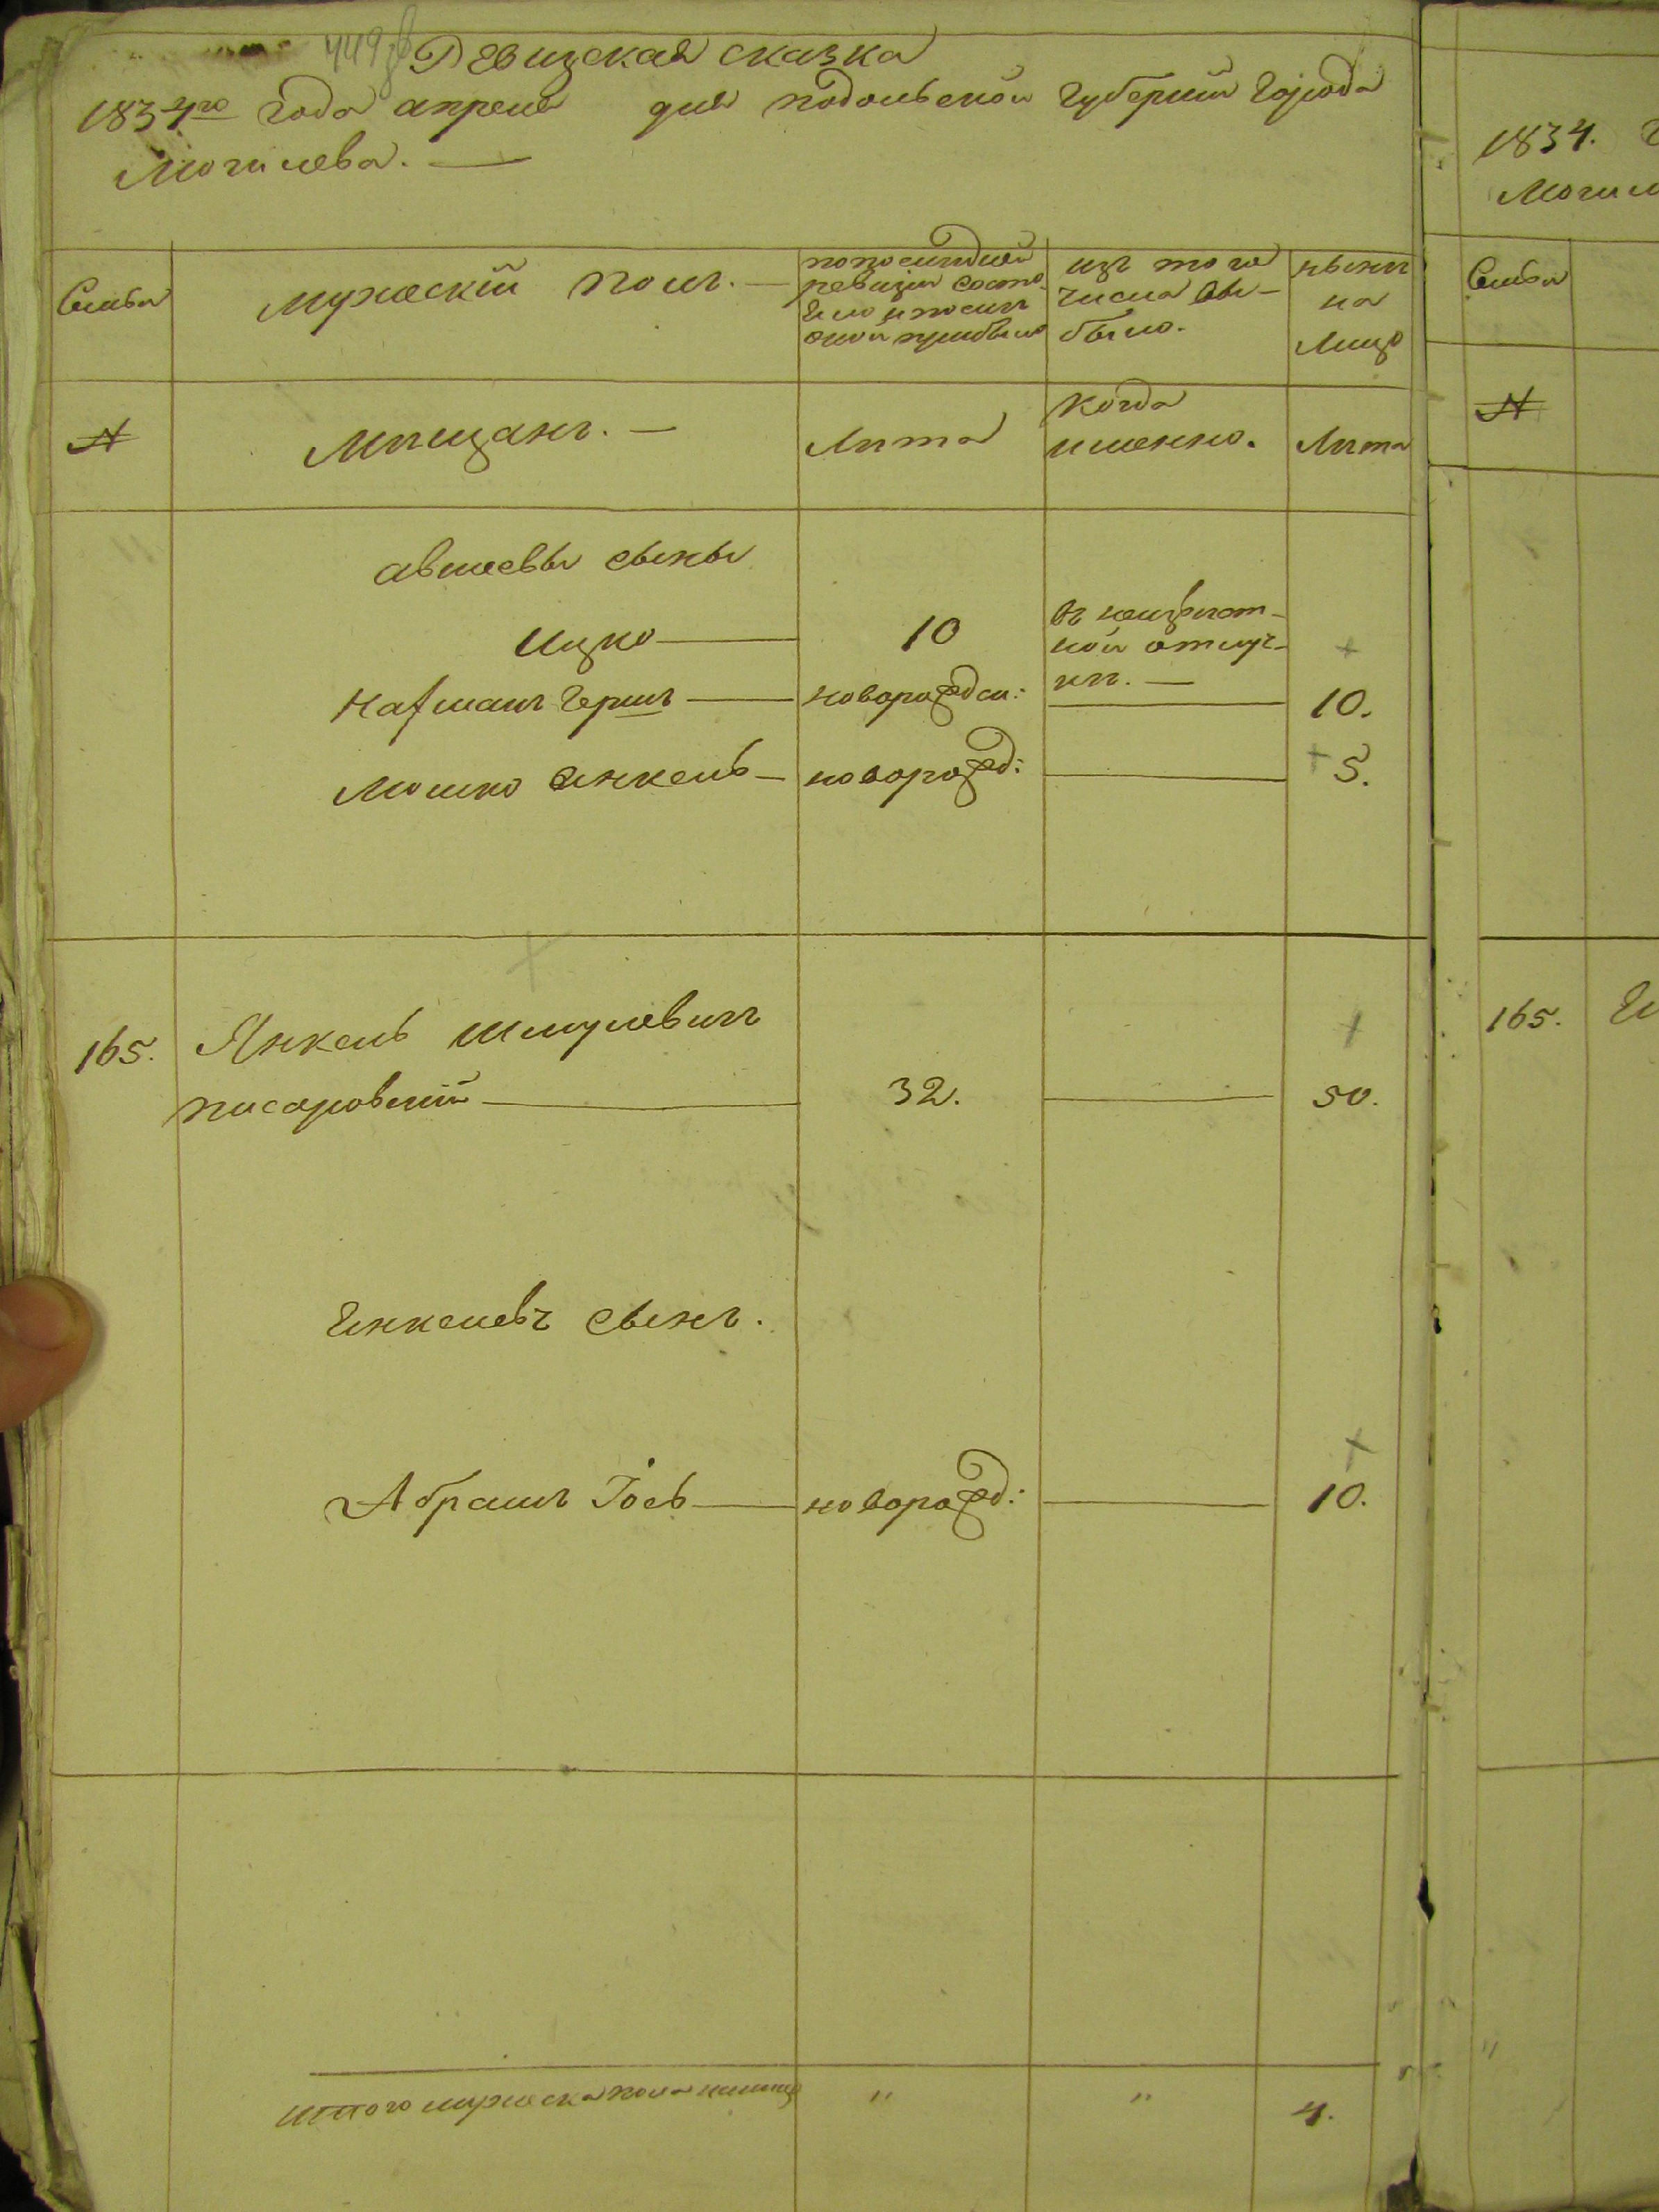 449
Ревизская сказка
1834го года апреля дня подольской губернии города
Могилева. —
Семьи
Мужеский полъ. —
по последней
ревизии состо-
яло и после
оной прибыло
изъ того
числа вы-
было.
ныне
на
лицо
№
Мѣщанъ. —
Лѣта
когда
именно.
Лѣта
авшеевы сыны
Ицко — 10
въ неизвѣст-
ной отлуч-
кѣ. —
Нафманъ Гершъ — новорожден: — 10.
Мошко Янкель — новорожд: — 5.
165. Янкель Шмулевичъ
писаровскій — 32. — 50.
Янкелевъ сынъ.
Абрамъ Іось — новорожд: — 10.
Итого мужеска пола налицо " " 4.
1834.
Семьи
№
165.
"